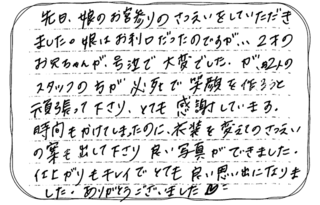 先日、娘のお宮参りのさつえいをしていただき
ました。娘はお利口だったのですが、、2才の
お兄ちゃんが号泣で大変でした。が、2人の
スタッフの方が必死で笑顔を作ろうと
頑張って下さり、とても感謝しています。
時間もかけてしまったのに、衣装を変えてのさつえい
の案も出して下さり良い写真ができました。
仕上がりもキレイでとても良い思い出になりま
した。ありがとうございました